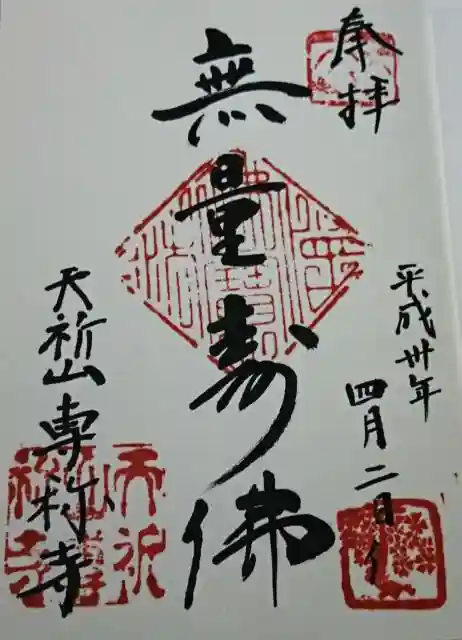 奉拝
平成卅年
四月二日
無量寿佛
天祈山
專称寺